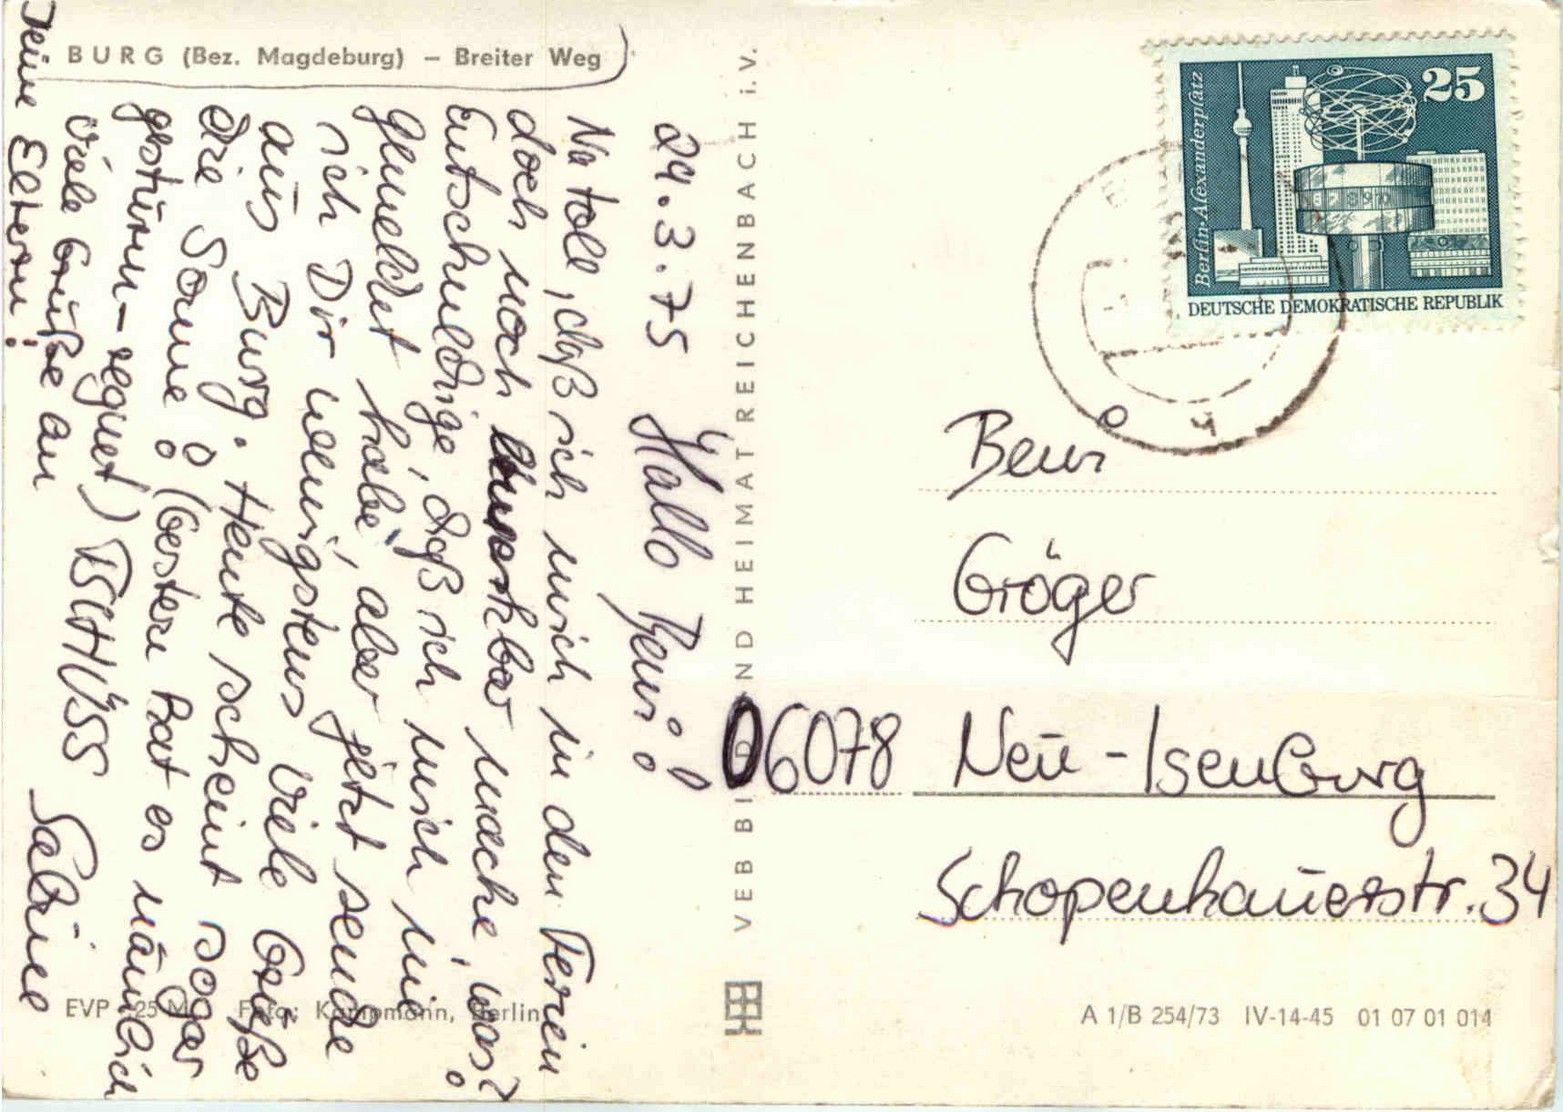 BURG (Bez. Magdeburg) – Breiter Weg
29.3.75 Hallo Beni!
Na toll, daß ich mich in den Ferien
doch noch bemerkbar mache, was?!
Entschuldige, daß ich mich nie
gemeldet habe, aber jetzt sende
ich Dir wenigstens viele Grüße
aus Burg. Heute scheint sogar
die Sonne! (Gestern hat es nämlich
gestürm-regnet) TSCHÜSS
Viele Grüße an Sabine
Deine Eltern!
EVP 25 M Foto: Kampmann, Berlin
VEB BILD UND HEIMAT REICHENBACH i.V.
25
Berlin·Alexanderplatz
DEUTSCHE DEMOKRATISCHE REPUBLIK
Beni
Gröger
06078 Neu-Isenburg
Schopenhauerstr. 34
A 1/B 254/73 IV-14-45 01 07 01 014